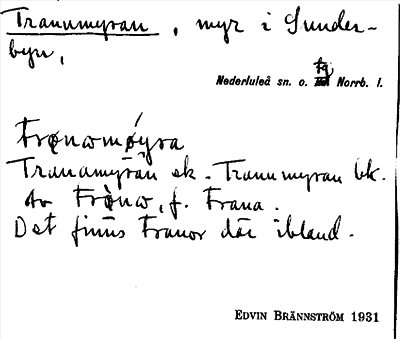 Tranumyran, myr i Sunder-
byn,
Nederluleå sn. o. Norrb. l.
Tranamyran ek. Tranumyran bk.
Av f. trana.
Det finns tranor där ibland.
EDVIN BRÄNNSTRÖM 1931